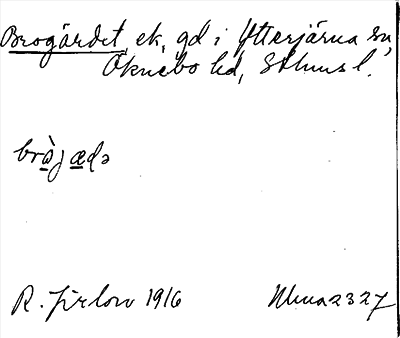 Brogärdet, ek, gd i Ytterjärna sn,
Öknebo hd, Sthms l.
bròjædə
R. Jirlow 1916 Ulma 2327